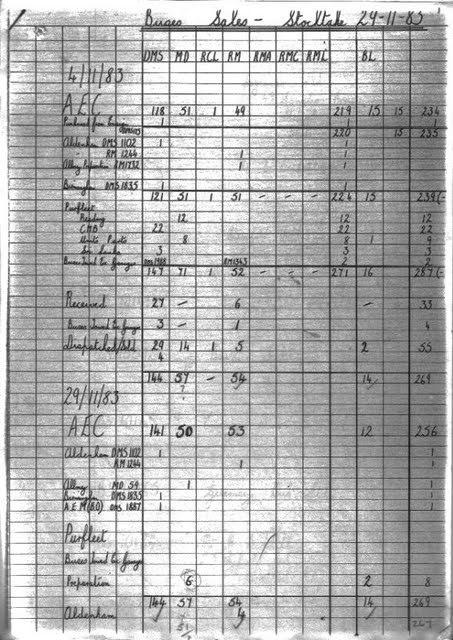 Buses Sales - Stocktake 29-11-83
DMS MD RCL RM RMA RMC RML BL
4/11/83
AEC 118 51 1 49 219 15 15 234
1 1
DMS 1 220 15 235
Aldenham DMS 1102 1 1
RM 1244 1 1
RM1732 1 1
DMS 1835 1 1
121 51 1 51 - - - 224 15 239
Purfleet
Reading 12 12 12
CMB 22 22 22
Units Parts 8 8 1 9
Sri Lanka 3 3 3
Buses Loaned to Garages DMS 1988 RM1343 2 2
147 71 1 52 - - - 271 16 287
Received 27 - 6 - 33
Buses Loaned to Garages 3 - 1 4
Despatched/Sold 29 14 1 5 2 55
4
144 57 - 54 14 269
?
29/11/83
AEC 141 50 53 12 256
Aldenham DMS 1102 1 1
RM 1244 1 1
MD 59 1 1
DMS 1835 1 1
DMS 1887 1 1
Purfleet
Buses Loaned to Garages
Preparation 6 2 8
144 57 54 14 269
Aldenham 4
267